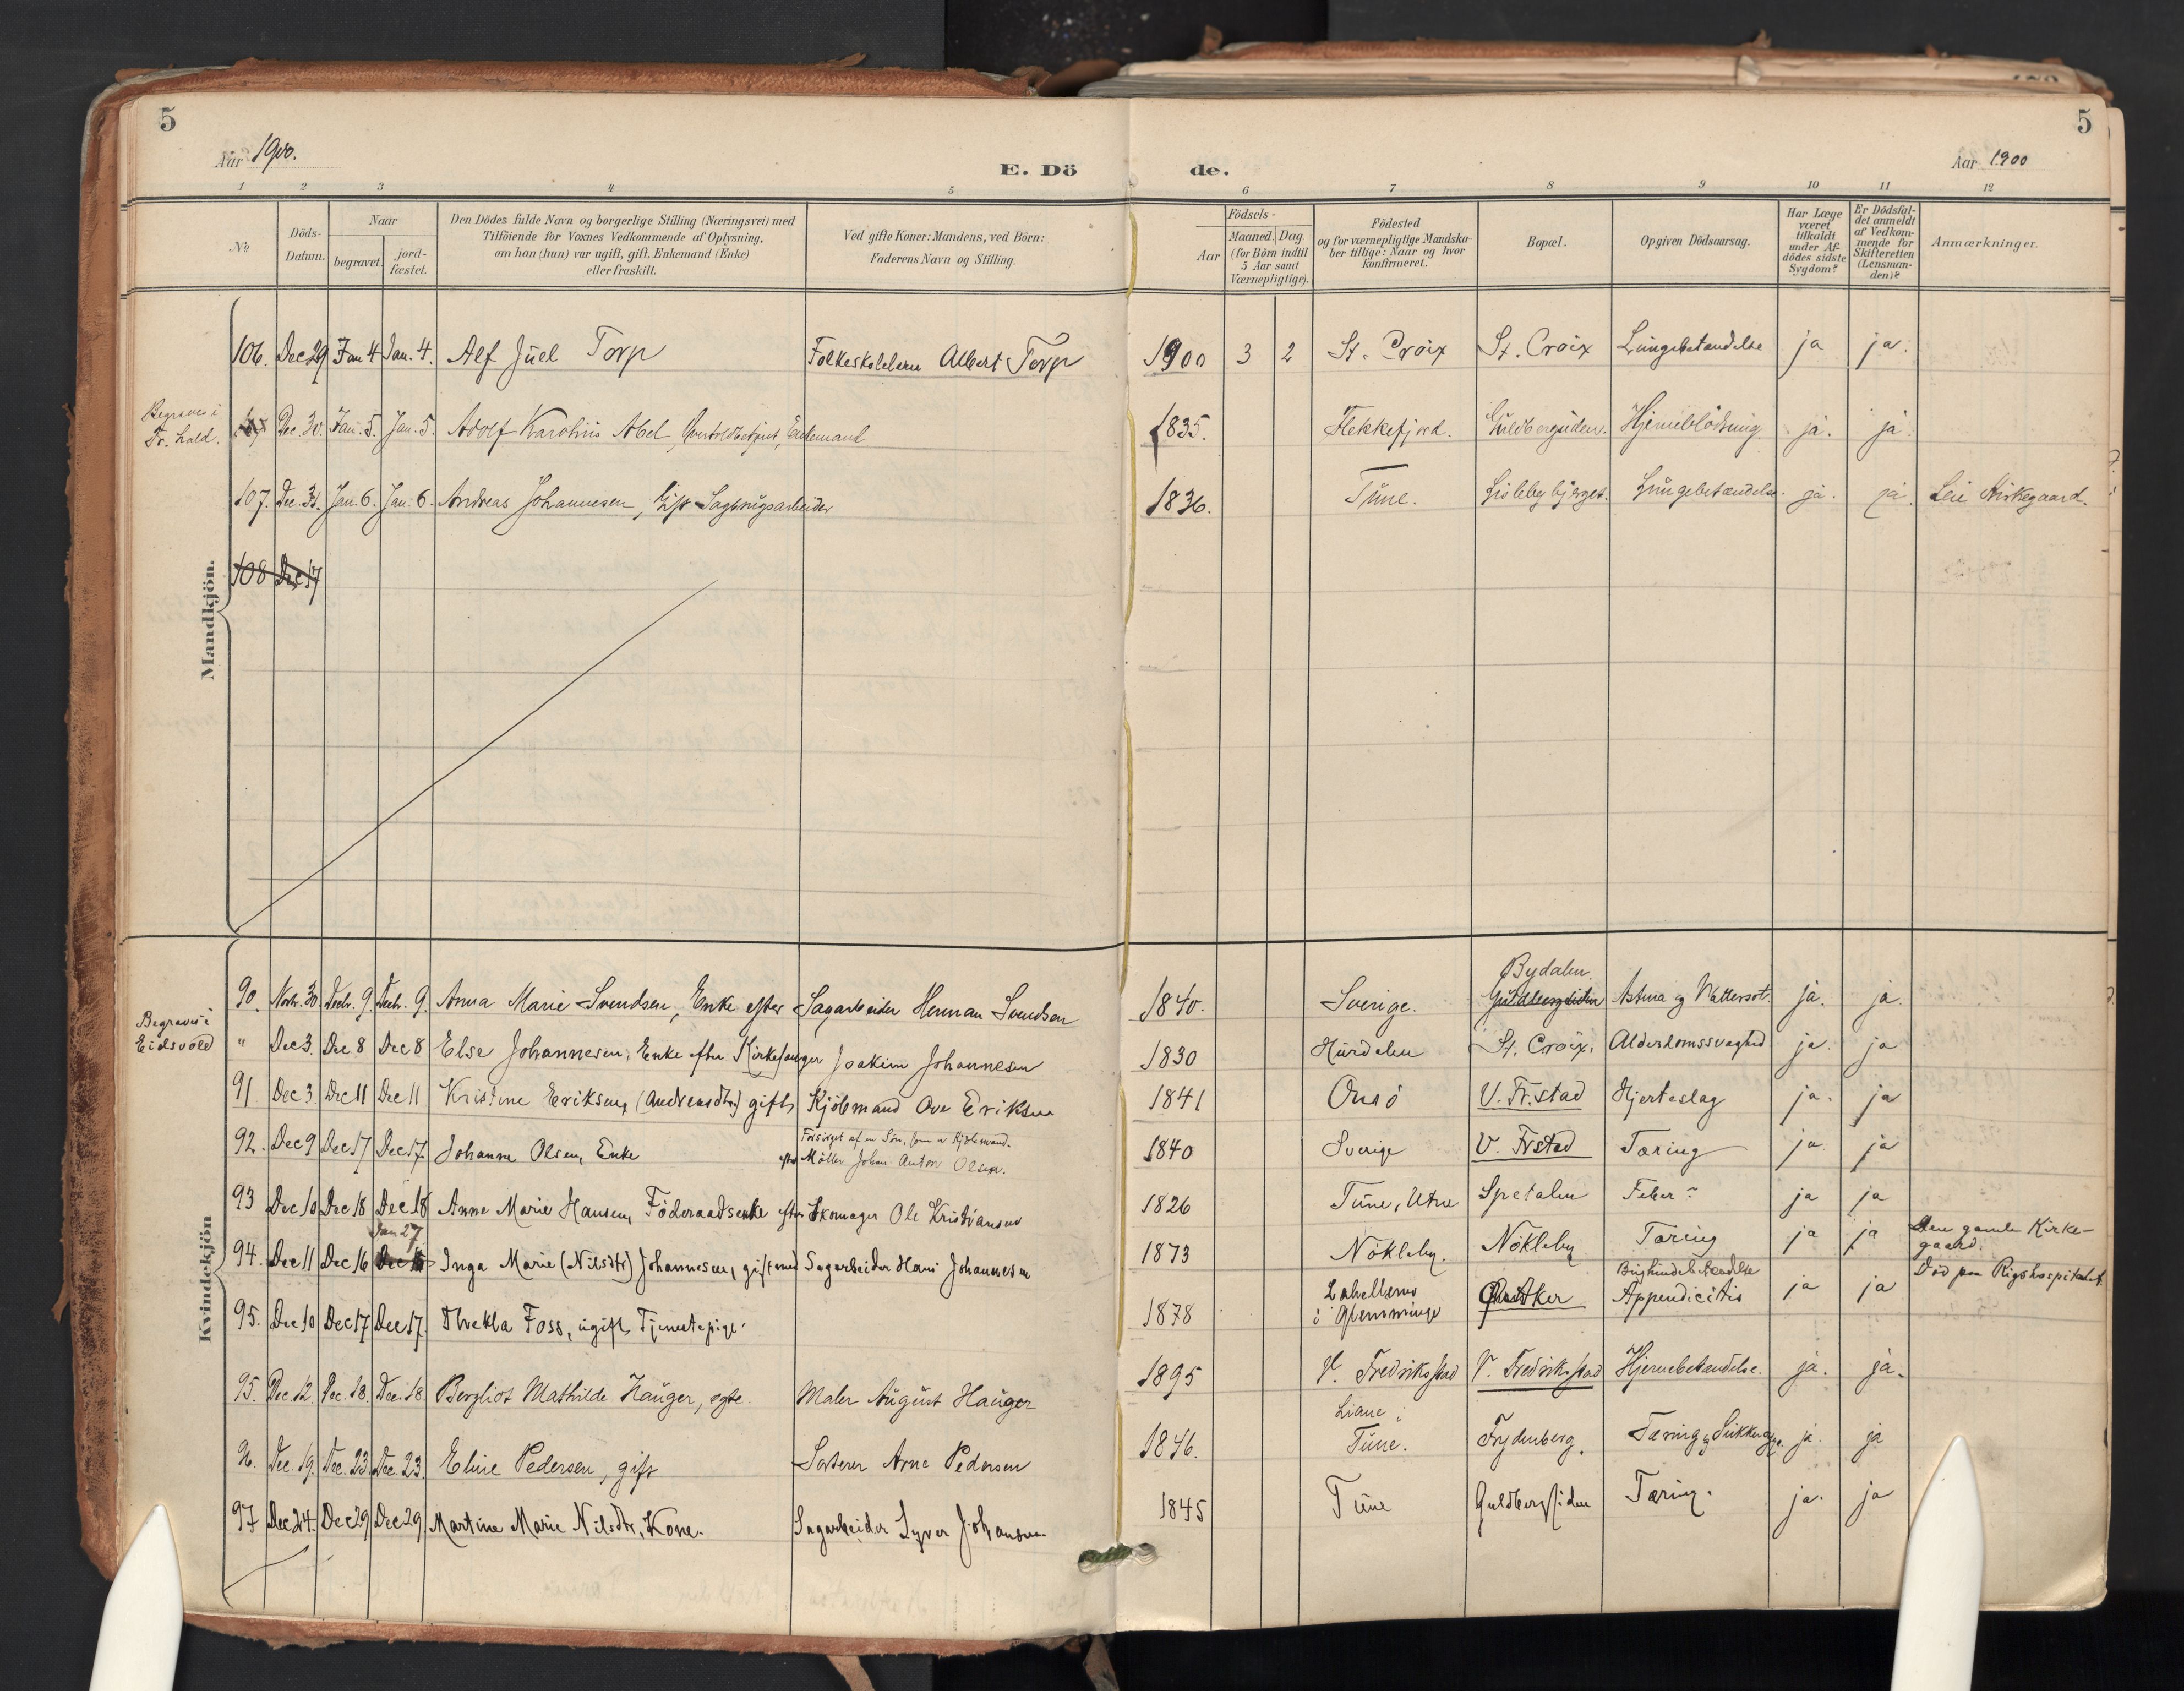 5
5
Aar 1900.
E. Dö
de.
Aar 1900
1 2 3 4 5 6 7 8 9 10 11 12
No
Döds-
Datum.
Naar
begravet.
jord-
fæstet.
Den Dödes fulde Navn og borgerlige Stilling (Næringsvei) med
Tilföiende for Voxnes Vedkommende af Oplysning,
om han (hun) var ugift, gift, Enkemand (Enke)
eller fraskilt.
Ved gifte Koner: Mandens, ved Börn:
Faderens Navn og Stilling.
Födsels-
Aar
Maaned. Dag.
(for Börn indtil
5 Aar samt
Værnepligtige).
Födested
og for værnepligtige Mandska-
ber tillige: Naar og hvor
konfirmeret.
Bopæl.
Opgiven Dödsaarsag.
Har Læge
været
tilkaldt
under Af-
dödes sidste
Sygdom?
Er Dödsfal-
det anmeldt
af Vedkom-
mende for
Skifteretten
(Lensman-
den)?
Anmærkninger.
Mandkjön.
106. Dec 29 Jan 4 Jan. 4. Alf Juel Torp Folkeskolelærer Albert Torp 1900 3 2 St. Croix St. Croix Lungebetændelse ja ja.
Begraves i
Fr. hald.
Dec. 30. Jan. 5. Jan. 5. Adolf Karolius Abel, Overtoldbetjent, Enkemand 1835. Flekkefjord. Guldbergsiden. Hjerneblödning ja. ja.
107. Dec. 31. Jan. 6. Jan. 6. Andreas Johannesen, Gift Sagbrugsarbeider 1836. Tune. Lislebybjerget. Lungebetændelse. ja. ja. Leie Kirkegaard.
108 Dec 17
Kvindekjön
90. Novbr. 30. Decbr. 9. Decbr. 9. Anna Marie Svendsen, Enke efter Sagarbeider Herman Svendsen 1840. Sverige. Bydalen.
Guldbergsiden Astma og Vattersot. ja. ja.
Begraves i
Eidsvold
" Dec 3. Dec 8 Dec 8 Else Johannesen, Enke efter Kirkesanger Joakim Johannesen 1830 Hurdalen St. Croix. Alderdomssvaghed ja ja
91. Dec 3 Dec 11 Dec 11 Kristine Eriksen, (Andersdtr.) gift Kjöbmand Ove Eriksen 1841 Onsö V. Fr.stad Hjerteslag ja. ja
92. Dec 9 Dec 17 Dec 17. Johanne Olsen, Enke
Forsörget af en Sön, som er Kjöbmand.
efter Möller Johan Anton Olsen. 1840 Sverige V. Frstad Tæring ja ja
93 Dec 10 Dec 18 Dec 18 Anne Marie Hansen, Föderaadsenke efter Skomager Ole Kristiansen 1826 Tune, Utne Spetalen Feber ja ja
Jan 27
94. Dec 11 Dec 16 Inga Marie (Nilsdtr) Johannesen, gift med Sagarbeider Hans Johannesen 1873 Nökleby. Nökleby Tæring ja ja Den gamle Kirke-
gaard.
95. Dec 10 Dec 17 Dec 17. Thekla Foss, ugift, Tjenestepige. 1878
i Glemminge Aker
Appendicitis ja ja Död paa Rigshospitalet
95. Dec 12. Dec. 18. Dec. 18. Bergliot Mathilde Hauger, egte. Maler August Hauger 1895 V. Fredriksstad V. Fredriksstad Hjernebetændelse. ja. ja.
96. Dec. 19. Dec. 23. Dec. 23. Eline Pedersen, gift Sorterer Arne Pedersen 1846. Liane i
Tune. Frydenberg. Tæring og Sukkersyge. ja. ja
97 Dec 24. Dec 29 Dec 29 Martine Marie Nilsdtr, Kone. Sagarbeider Syver Johansen 1845 Tune Guldbergsiden Tæring. ja. ja